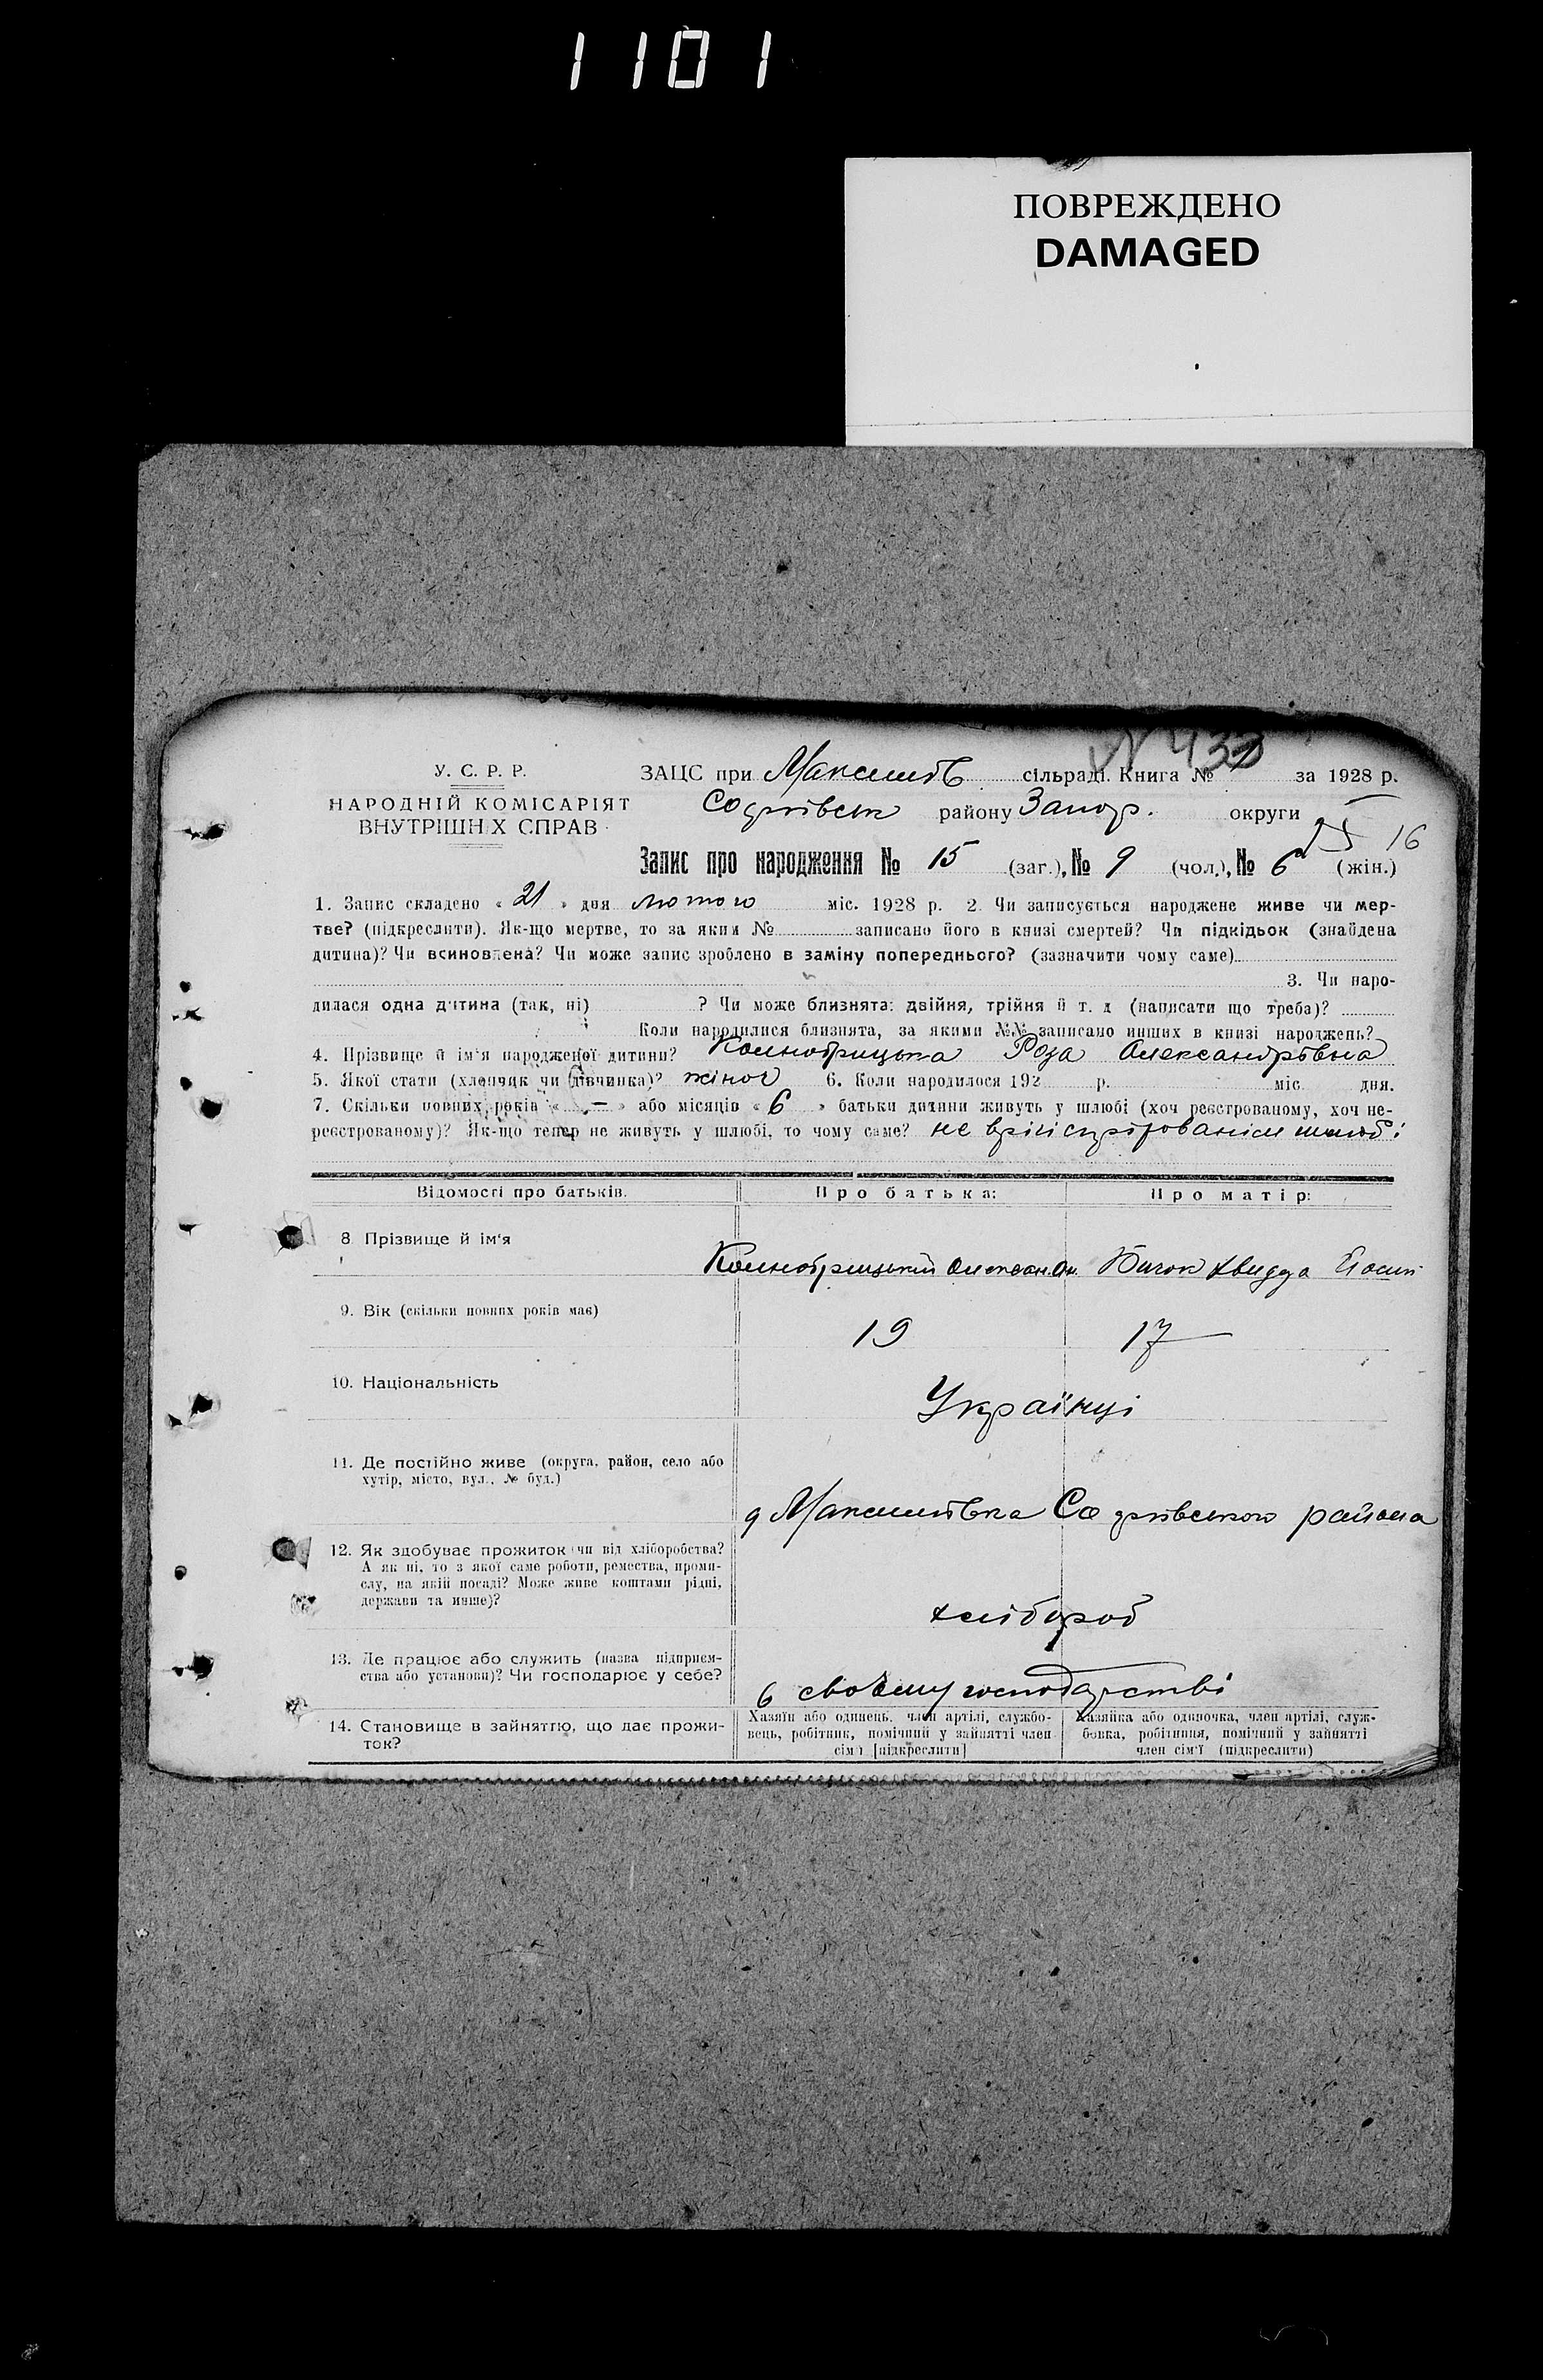 1101
ПОВРЕЖДЕНО
DAMAGED
N 433
У. С. Р. Р.
НАРОДНІЙ КОМІСАРІЯТ
ВНУТРІШНІХ СПРАВ
ЗАЦС при Максимів сільраді. Книга № за 1928 р.
району Запор. округи
16
Запис про народження № 15 (заг.), № 9 (чол.), № 6 (жін.)
1. Запис складено « 21 » дня лютого міс. 1928 р. 2. Чи записується народжене живе чи мер-
тве? (підкреслити). Як-що мертве, то за яким № записано його в книзі смертей? Чи підкідьок (знайдена
дитина)? Чи всиновлена? Чи може запис зроблено в заміну попереднього? (зазначити чому саме)
3. Чи наро-
дилася одна дитина (так, ні) ? Чи може близнята: двійня, трійня й т. д (написати що треба)?
Коли народилися близнята, за якими №№ записано инших в книзі народжень?
4. Прізвище й ім'я народженої дитини? Роза Олександрівна
5. Якої стати (хлопчик чи дівчинка)? жіноч 6. Коли народилося 192 р. міс. дня.
7. Скільки повних років « – » або місяців « 6 » батьки дитини живуть у шлюбі (хоч реєстрованому, хоч не-
реєстрованому)? Як-що тепер не живуть у шлюбі, то чому саме? не шлюбі
Відомості про батьків.
Про батька:
Про матір:
8. Прізвище й ім'я
9. Вік (скільки повних років має)
19
17
10. Національність
Українці
11. Де постійно живе (округа, район, село або
хутір, місто, вул., № буд.)
Максимівка района
12. Як здобуває прожиток (чи від хліборобства?
А як ні, то з якої саме роботи, ремества, проми-
слу, на якій посаді? Може живе коштами рідні,
держави та инше)?
хлібороб
13. Де працює або служить (назва підприєм-
ства або установи)? Чи господарює у себе?
в своєму господарстві
14. Становище в зайняттю, що дає прожи-
ток?
Хазяїн або одинець, член артілі, службо-
вець, робітник, помічний у зайнятті член
сім'ї [підкреслити]
Хазяйка або одиночка, член артілі, служ-
бовка, робітниця, помічний у зайнятті
член сім'ї (підкреслити)